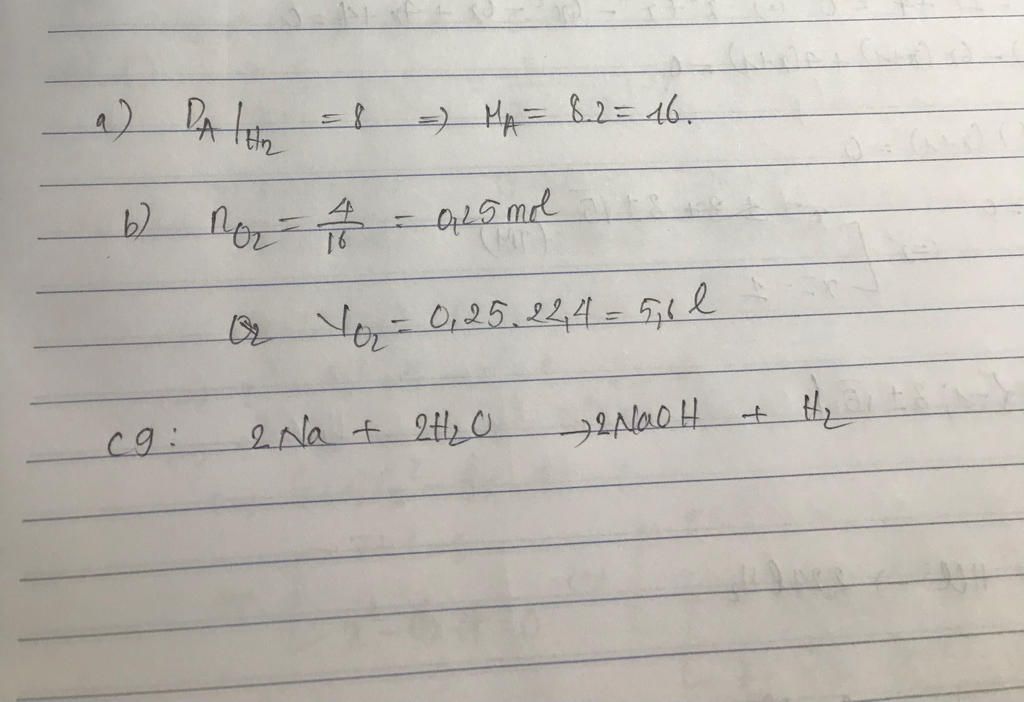 a) D_A/H2 = 8 => M_A = 8.2 = 16.
b) n_O2 = 4/16 = 0,25 mol
V_O2 = 0,25.22,4 = 5,6 l
c9: 2Na + 2H2O → 2NaOH + H2